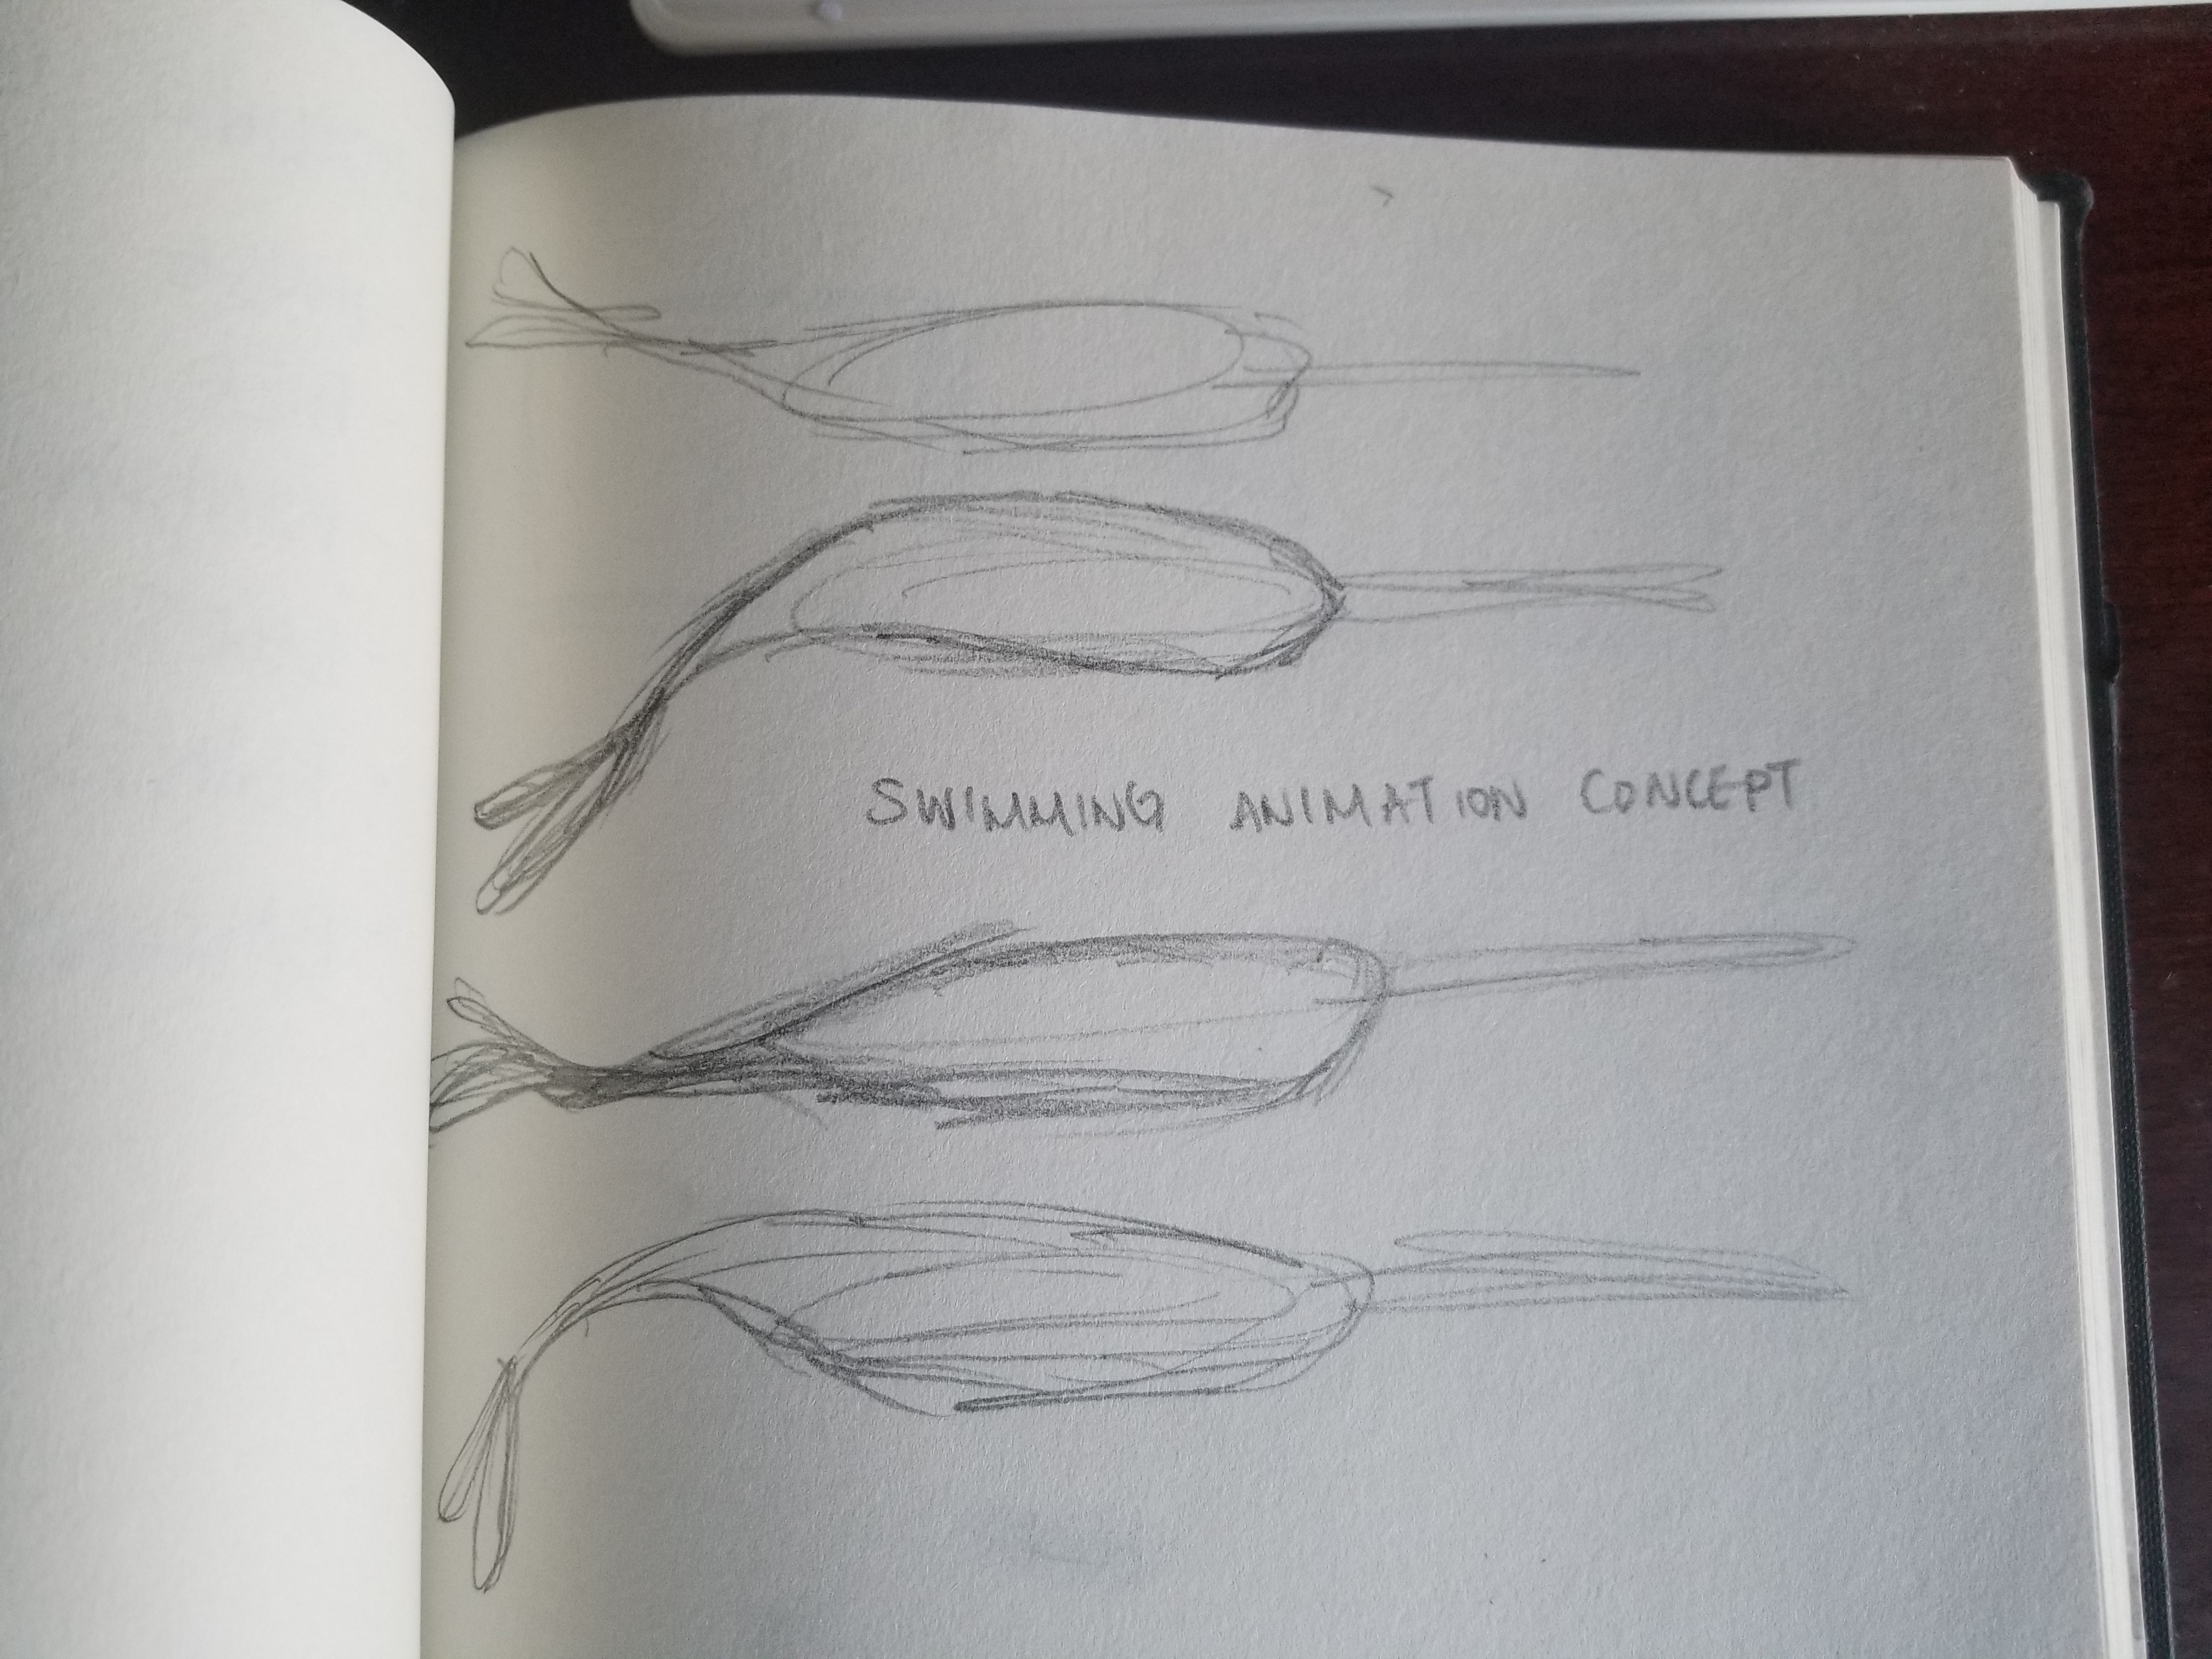 SWIMMING ANIMATION CONCEPT